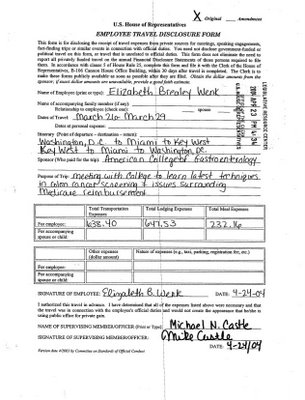 X Original Amendments
U.S. House of Representatives
EMPLOYEE TRAVEL DISCLOSURE FORM
This form is for disclosing the receipt of travel expenses from private sources for meetings, speaking engagements,
fact-finding trips or similar events in connection with official duties. You need not disclose government-funded or
political travel on this form, or travel that is unrelated to official duties. This form does not eliminate the need to
report all privately funded travel on the annual Financial Disclosure Statements of those persons required to file
them. In accordance with clause 5 of House Rule 25, complete this form and file it with the Clerk of the House of
Representatives, B-106 Cannon House Office Building, within 30 days after travel is completed. The Clerk is to
make these forms publicly available as soon as possible after they are filed. Obtain the dollar amounts from the
sponsor; if exact dollar amounts are unavailable, provide a good faith estimate.
Name of Employee (print or type): Elizabeth Brealey Wenk
Name of accompanying family member (if any):
Relationship to employee (check one): spouse
Date of Travel March 26 - March 29
Dates at personal expense
Itinerary (Point of departure - destination - return):
Washington, D.C. to Miami to Key West
Key West to Miami to Washington, DC
Sponsor (Who paid for the trip) American College of Gastroenterology
Purpose of Trip: meeting with College to learn latest techniques
in colon cancer screening & issues surrounding
Medicare reimbursement
Total Transportation Expenses Total Lodging Expenses Total Meal Expenses
For employee: 638.40 647.53 232.16
For accompanying spouse or child:
Other expenses (dollar amount) Nature of expenses (e.g., taxes, parking, registration fee, etc.)
For employee:
For accompanying spouse or child:
SIGNATURE OF EMPLOYEE: Elizabeth B Wenk DATE: 4-24-04
I authorized this travel in advance. I have determined that all of the expenses listed above were necessary and that
the travel was in connection with the employee's official duties and would not create the appearance that he/she is
using public office for private gain.
NAME OF SUPERVISING MEMBER/OFFICER (Print or Type) Michael N. Castle
SIGNATURE OF SUPERVISING MEMBER/OFFICER: Mike Castle
DATE: 4-24/04
Version date 4/2003 by Committee on Standards of Official Conduct